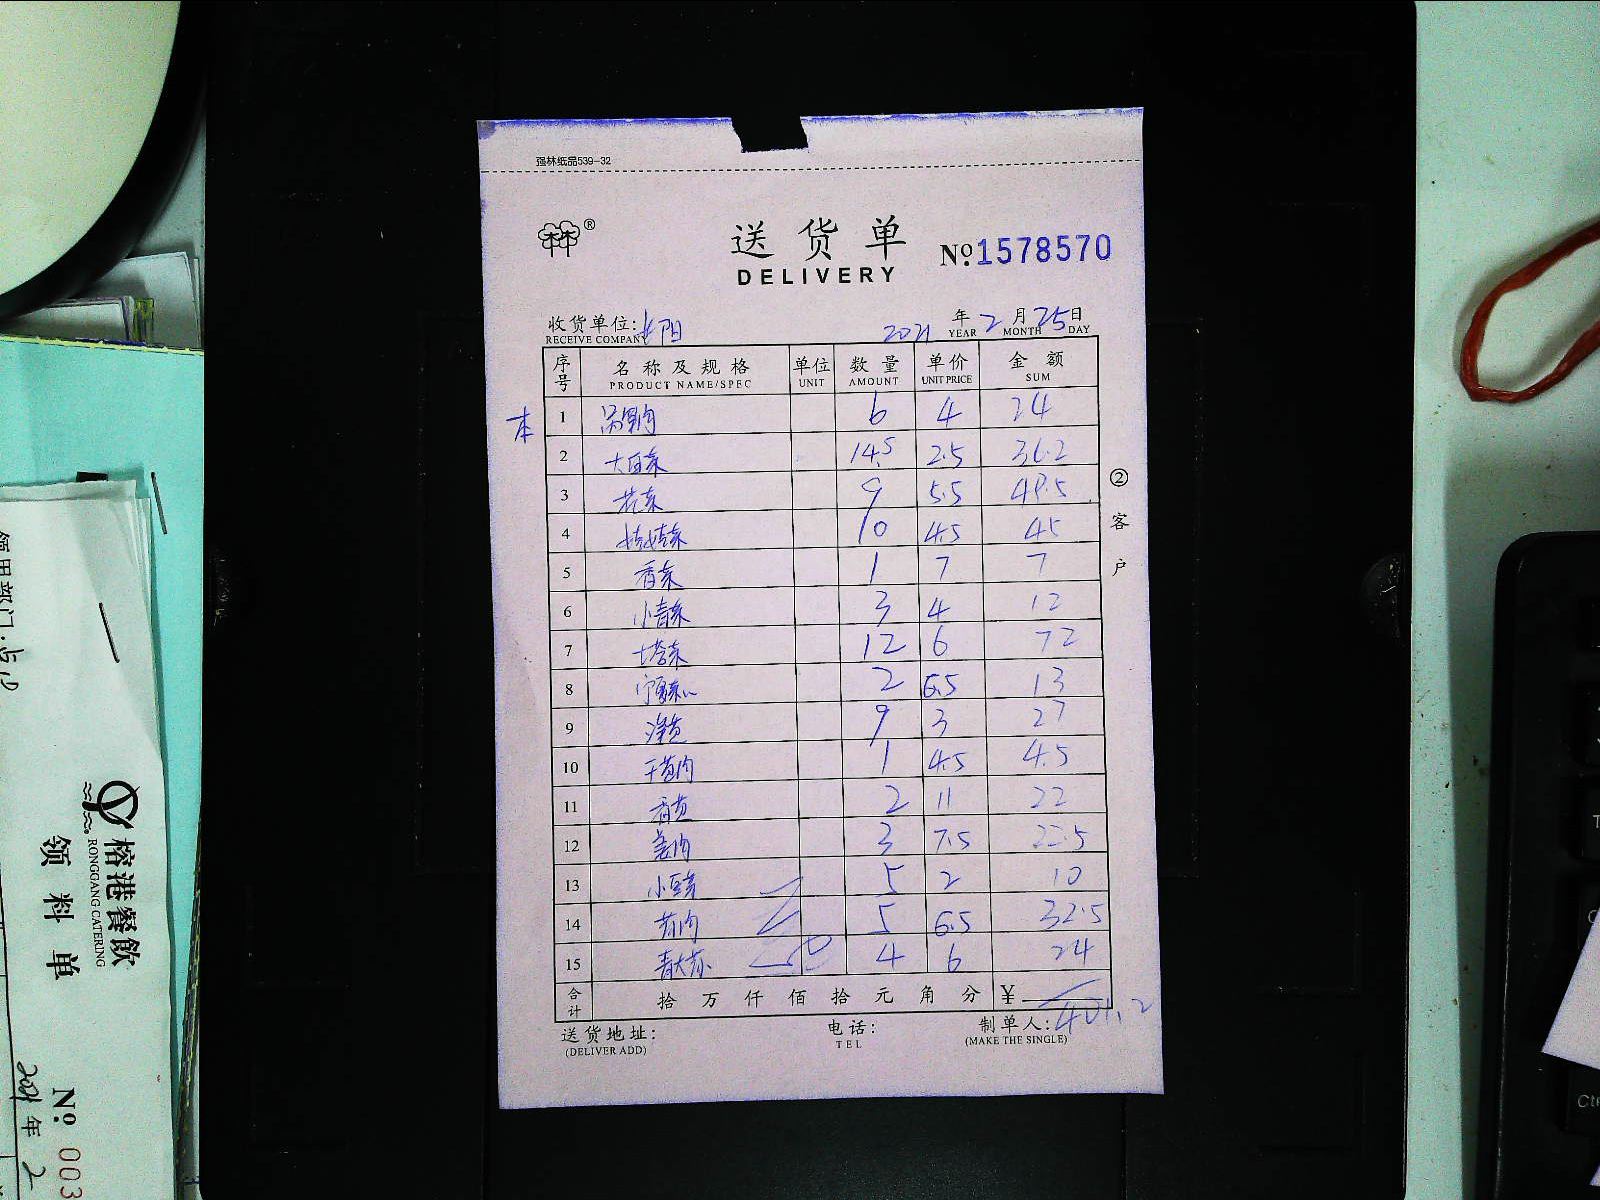 强林纸品539-32
林林®
送货单
DELIVERY
№1578570
收货单位:长阳 2021年2月25日
RECEIVE COMPANY YEAR MONTH DAY
序号 名称及规格 单位 数量 单价 金额
PRODUCT NAME/SPEC UNIT AMOUNT UNIT PRICE SUM
本
1 6 4 24
2 大白菜 14.5 2.5 36.2
3 花菜 9 5.5 49.5
4 10 4.5 45
5 香菜 1 7 7
6 小青菜 3 4 12
7 12 6 72
8 2 6.5 13
9 9 3 27
10 1 4.5 4.5
11 2 11 22
12 3 7.5 22.5
13 5 2 10
14 5 6.5 32.5
15 4 6 24
合计 拾万仟佰拾元角分 ¥ 401.2
送货地址: 电话: 制单人:
(DELIVER ADD) TEL (MAKE THE SINGLE)
②客户
榕港餐飲
RONGGANG CATERING
领料单
№ 003
2021年2
领用部门: